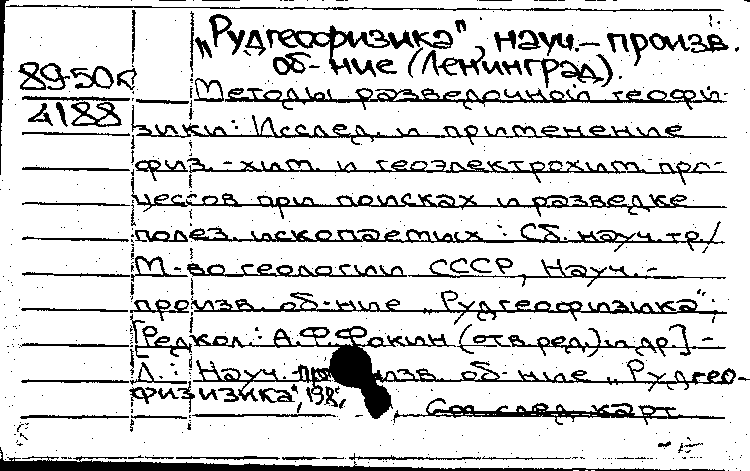 „Рудгеофизика", науч.-произв.
об-ние (Ленинград).
89-50к
4188
Методы разведочной геофи-
зики: Исслед. и применение
физ.-хим. и геоэлектрохим. про-
цессов при поисках и разведке
полез. ископаемых : Сб. науч. тр/
М-во геологии СССР, Науч.-
произв. об-ние „Рудгеофизика";
[Редкол.: А.Ф.Фокин (отв.ред.) и др.].-
Л.: Науч. произв. об-ние „Рудгео-
физизика", 198
См след. карт